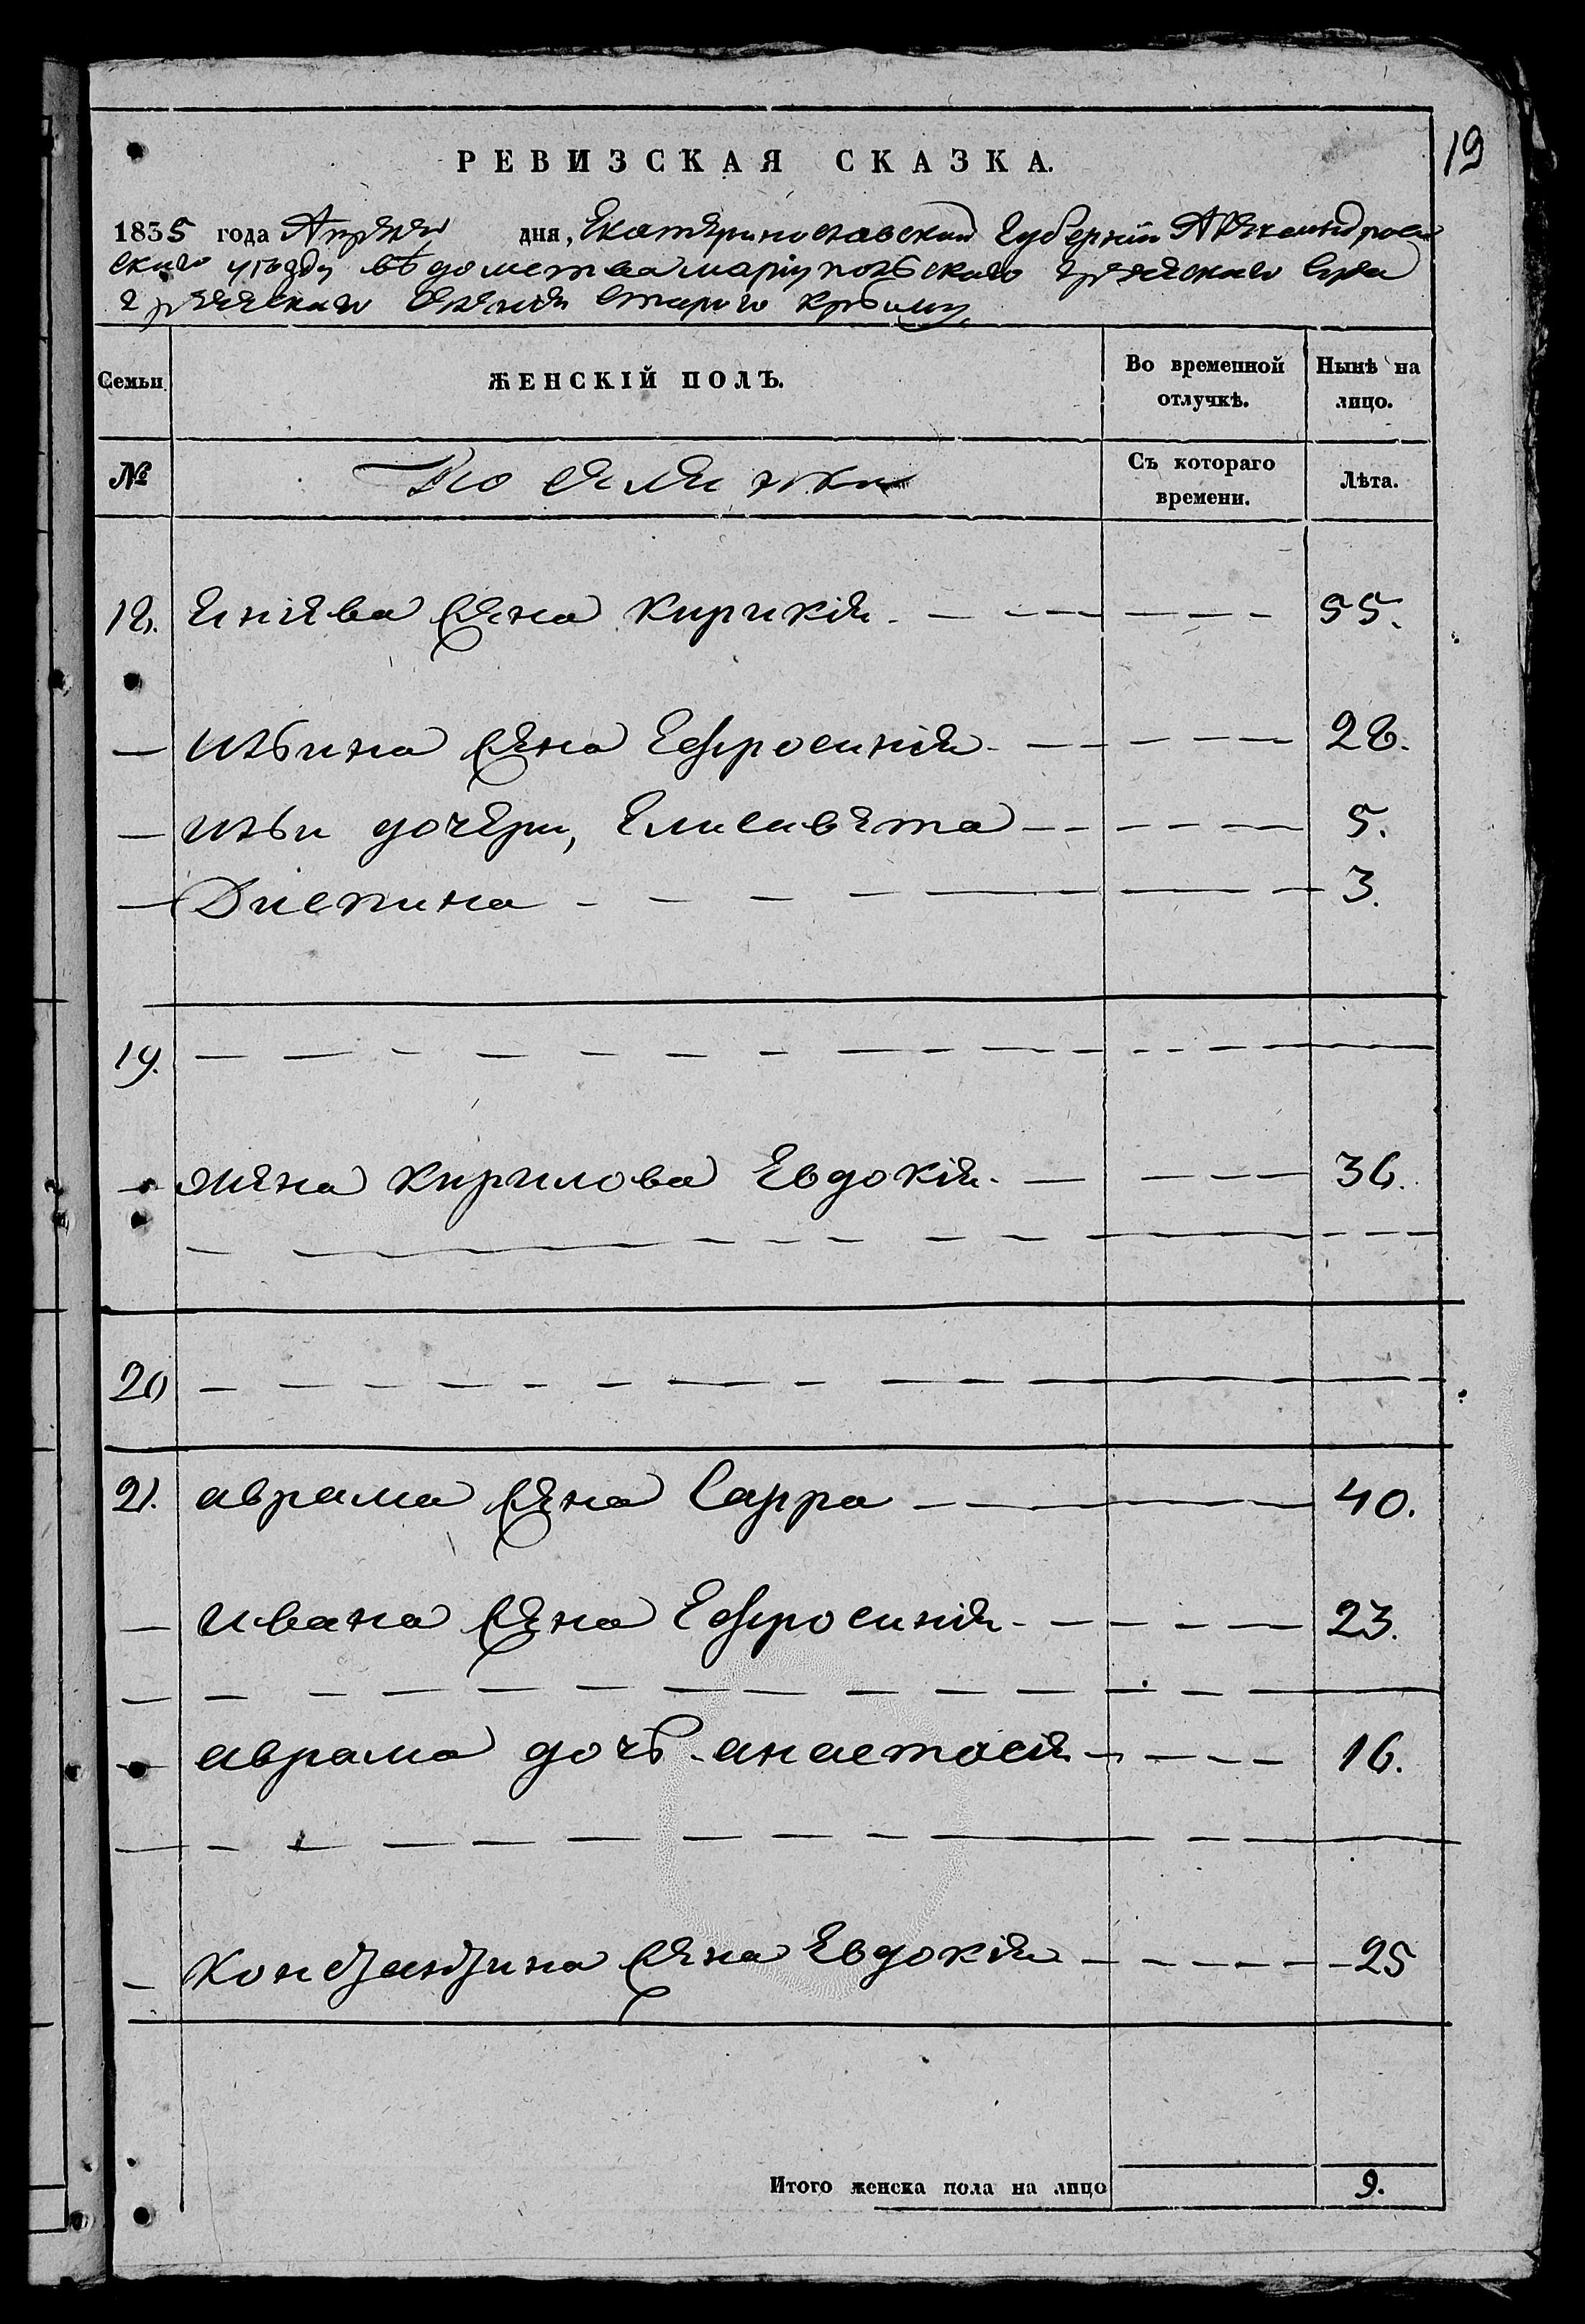 19
РЕВИЗСКАЯ СКАЗКА.
1835 года Апреля дня, Екатеринославской Губернии Александров
скаго уѣзду вѣдомства маріупольскаго греческаго Суда
греческаго Селенія Старого Крыму
Семьи ЖЕНСКІЙ ПОЛЪ. Во временной отлучкѣ. Нынѣ на лицо.
№ Поселянки Съ котораго времени. Лѣта.
18. жена Кирикія 55.
Ильина жена Ефросинія 28.
Ильи дочери, Елисавета 5.
3.
19.
жена Кирилова Евдокія 36.
20
21. аврама жена Сарра 40.
ивана жена Ефросинія 23.
аврама дочь анастасія 16.
Константина жена Евдокія 25
Итого женска пола на лицо 9.